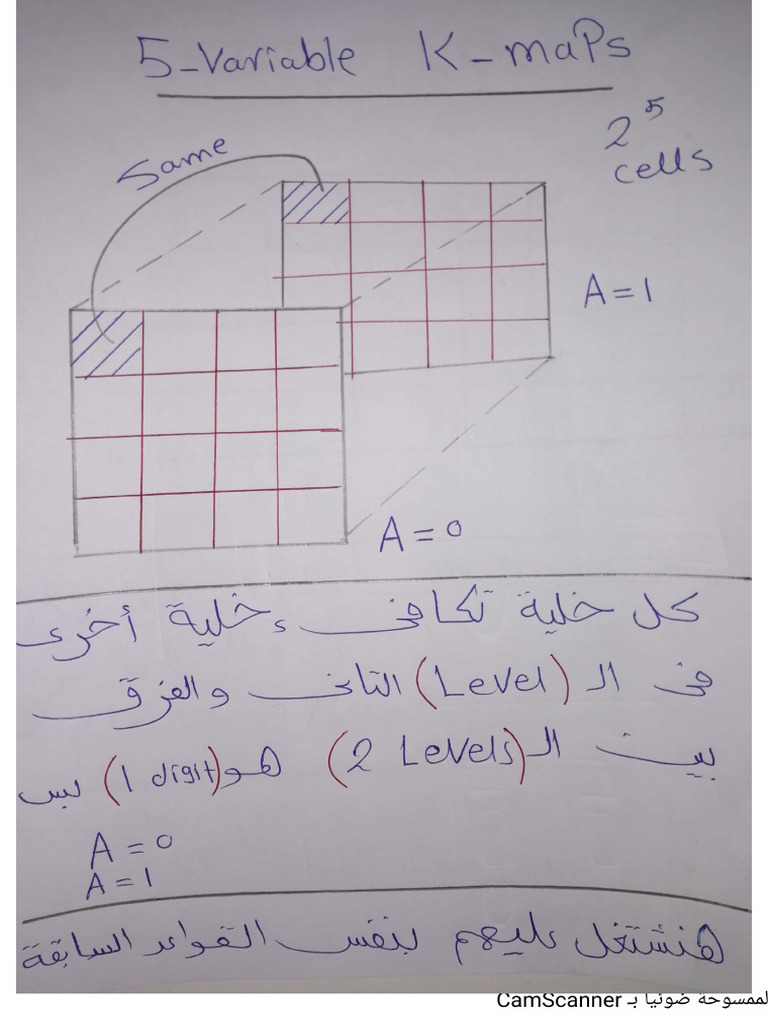 5-Variable K-maps
2^5
cells
Same
A=1
A=0
كل خلية تكافىء خلية أخرى
فى الـ (Level) التانى والفرق
بين الـ (2 Levels) هو (1 digit) بس
A=0
A=1
هنشتغل عليهم بنفس القواعد السابقة
الممسوحة ضوئيا بـ CamScanner